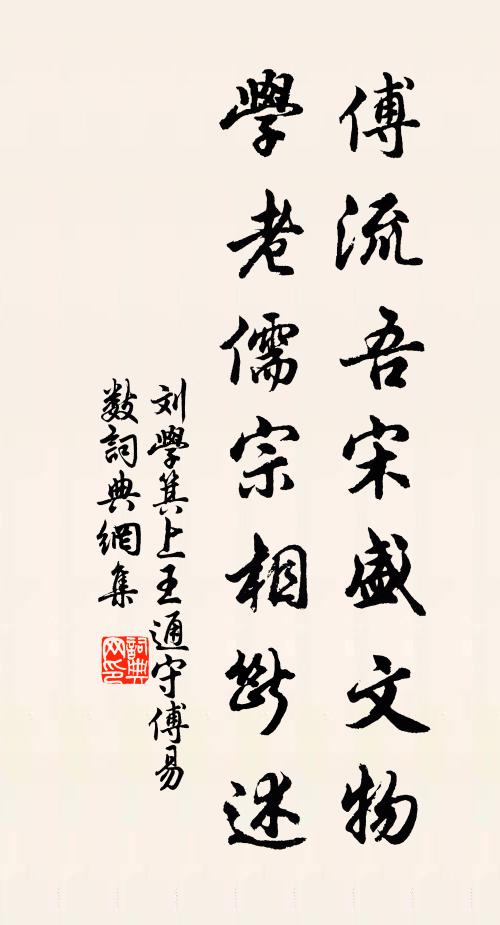 傅流吾宋盛文物
學老儒宗相斷述
刘學箕上王通守傅易
数詞典網集
詞典网印